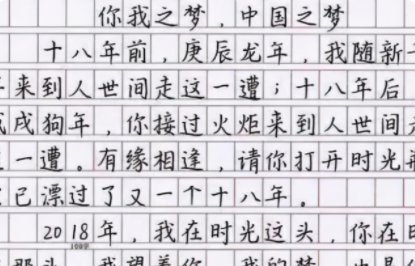 你我之梦，中国之梦
十八年前，庚辰龙年，我随新
来到人世间走这一遭；十八年后
戊戌狗年，你接过火炬来到人世间
一遭。有缘相逢，请你打开时光
已漂过了又一个十八年。
2018年，我在时光这头，你在时
那头，我望着你，我的梦，也是